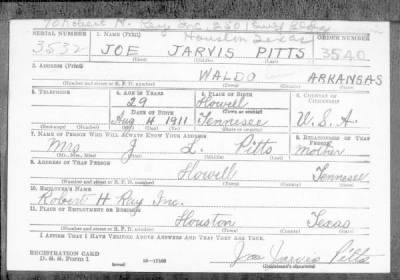 % Robert H. Ray Inc. 2501 Gulf Bldg
Houston Texas
SERIAL NUMBER 1. NAME (Print) ORDER NUMBER
3532 JOE JARVIS PITTS 3540
(First) (Middle) (Last)
2. ADDRESS (Print)
WALDO ARKANSAS
(Number and street or R. F. D. number) (Town) (County) (State)
3. TELEPHONE 4. AGE IN YEARS 5. PLACE OF BIRTH 6. COUNTRY OF CITIZENSHIP
29 Howell
DATE OF BIRTH (Town or county)
Aug 4 1911 Tennesee U. S. A.
(Exchange) (Number) (Mo.) (Day) (Yr.) (State or country)
7. NAME OF PERSON WHO WILL ALWAYS KNOW YOUR ADDRESS 8. RELATIONSHIP OF THAT PERSON
Mrs J. L. Pitts Mother
(Mr., Mrs., Miss) (First) (Middle) (Last)
9. ADDRESS OF THAT PERSON
Howell Tennesee
(Number and street or R. F. D. number) (Town) (County) (State)
10. EMPLOYER'S NAME
Robert H Ray Inc.
11. PLACE OF EMPLOYMENT OR BUSINESS
Houston Texas
(Number and street or R. F. D. number) (Town) (County) (State)
I AFFIRM THAT I HAVE VERIFIED ABOVE ANSWERS AND THAT THEY ARE TRUE.
REGISTRATION CARD
D. S. S. Form 1 (over) 16—17105 Joe Jarvis Pitts
(Registrant's signature)